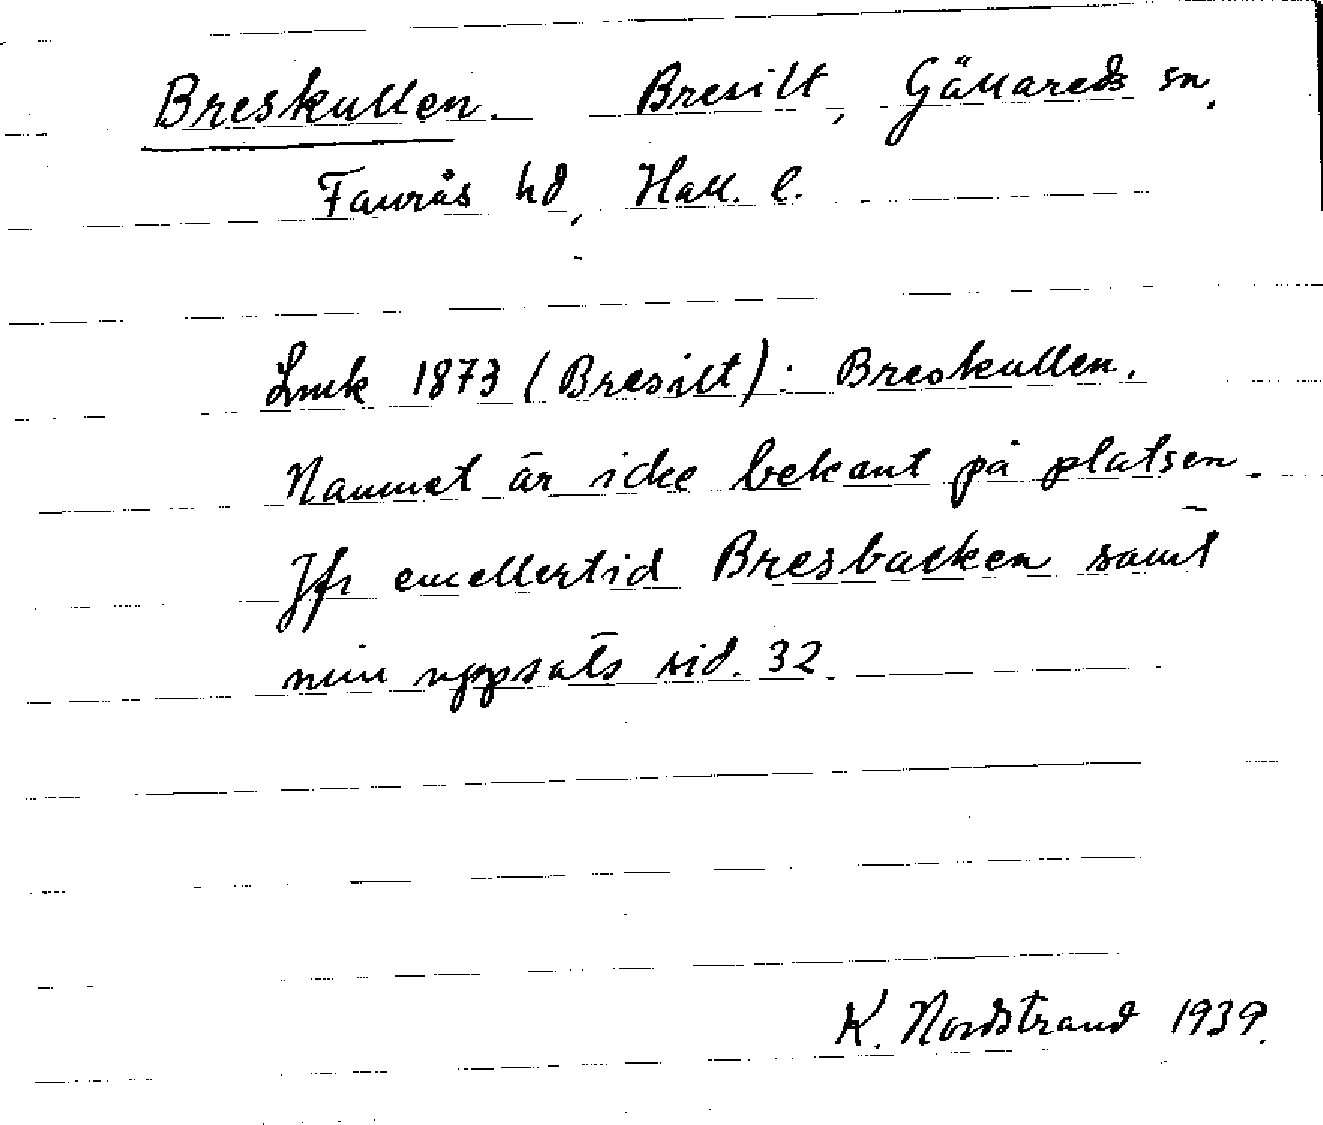 Breskullen. Bresilt, Gällareds sn,
Faurås hd, Hall. l.
Lmk 1873 (Bresilt): Breskullen.
Namnet är icke bekant på platsen.
Jfr emellertid Bresbacken samt
min uppsats sid. 32.
K. Nordstrand 1939.